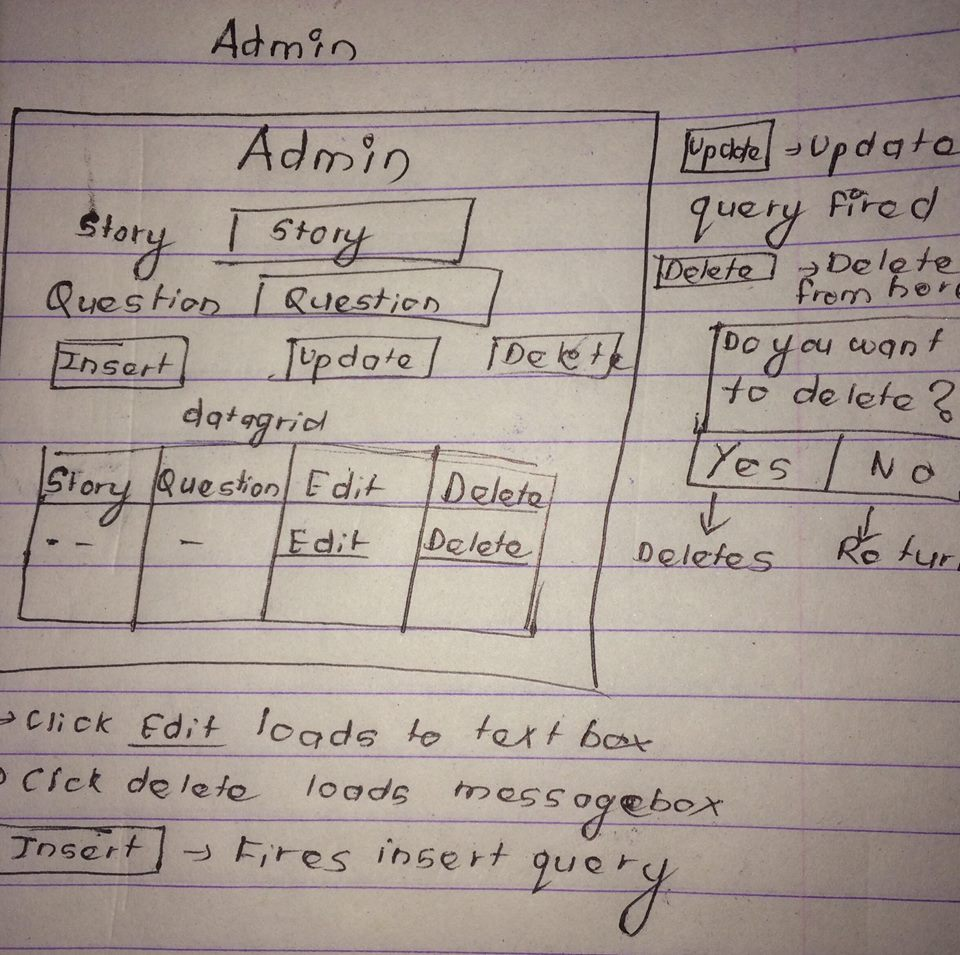 Admin
Admin
Story Story
Question Question
Insert Update Delete
datagrid
Story Question Edit Delete
-- - Edit Delete
Update → Update
query fired
Delete → Delete
from here
Do you want
to delete?
Yes No
Deletes Retur
→ Click Edit loads to text box
Click delete loads messagebox
Insert → Fires insert query